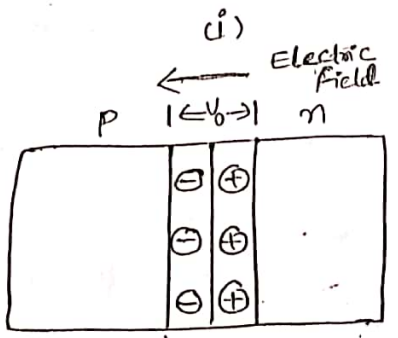 (i)
Electric
field
P |←V₀→| n
⊖ ⊕
⊖ ⊕
⊖ ⊕